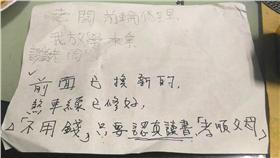 老闆 前輪修理
我放學來牽
謝謝
✓
前面已換新的,
煞車線已修好,
「不用錢」只要認真讀書「孝順父母」